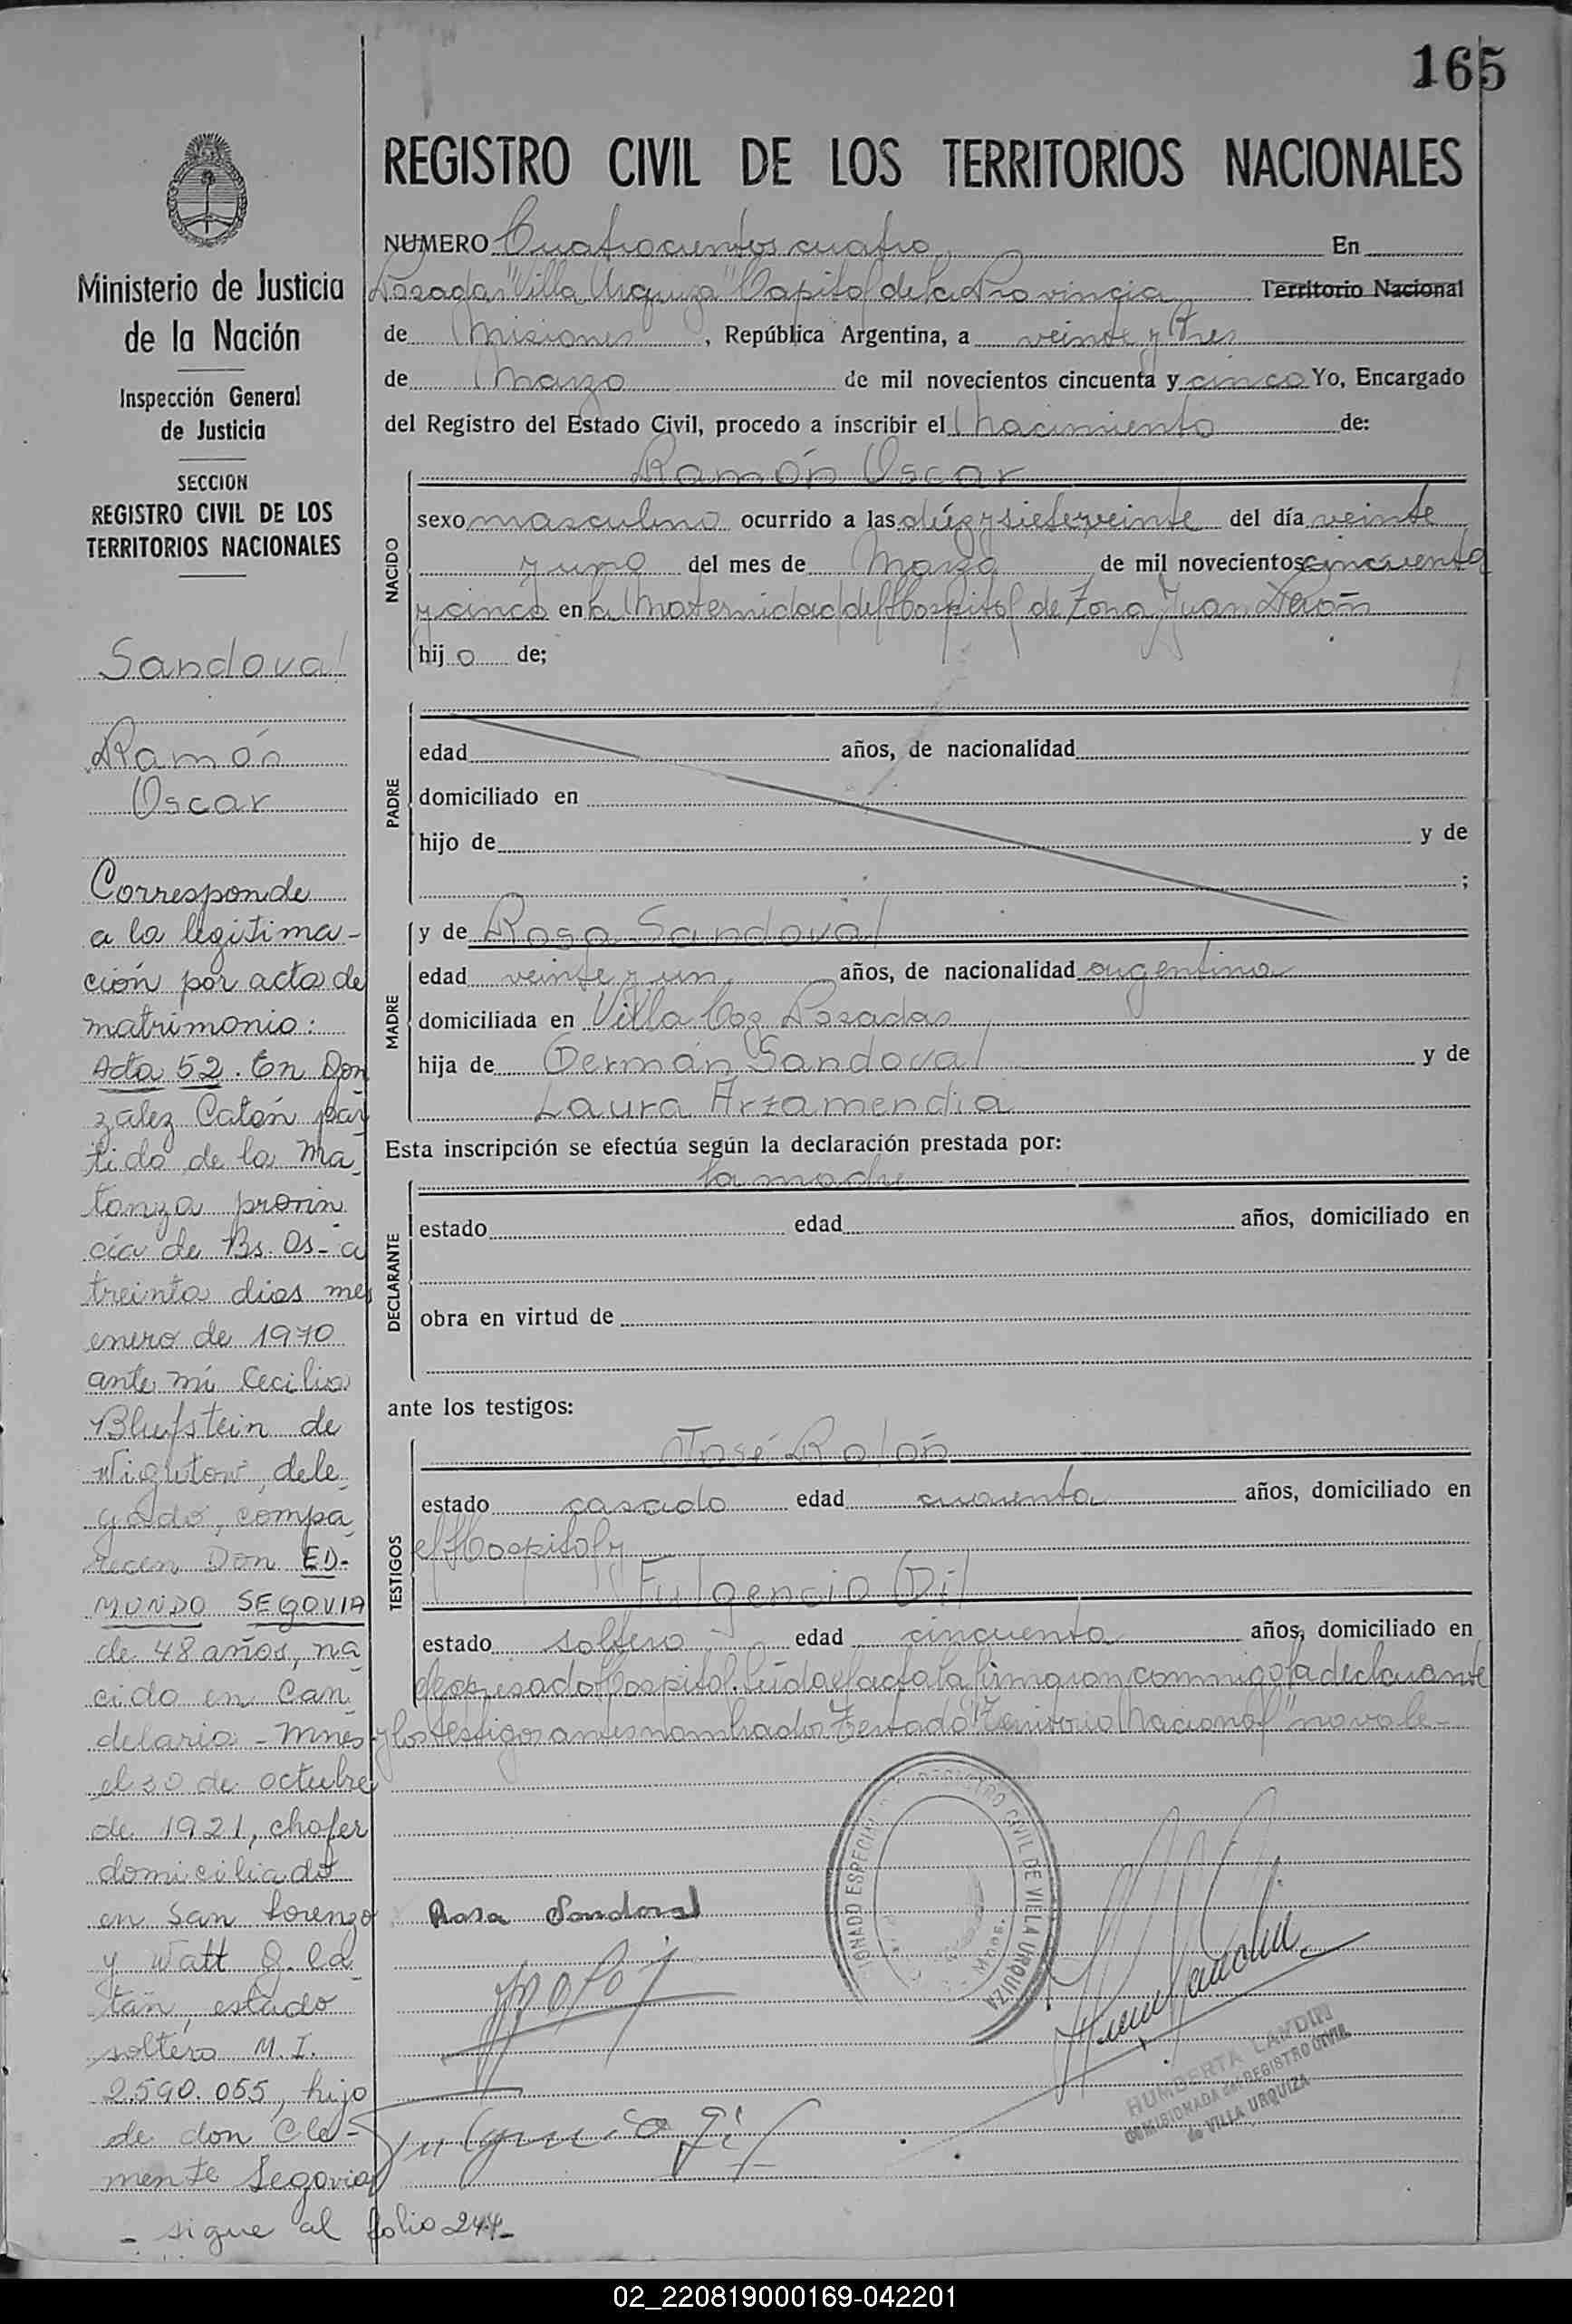 165
REGISTRO CIVIL DE LOS TERRITORIOS NACIONALES
Ministerio de Justicia
de la Nación
Inspección General
de Justicia
SECCION
REGISTRO CIVIL DE LOS
TERRITORIOS NACIONALES
Sandoval
Ramón
Oscar
Corresponde
a la legitima-
ción por acta de
matrimonio:
Acta 52. En Gon
zalez Catán par
tido de la Ma
tanza provin
cia de Bs. As - a
treinta dias mes
enero de 1970
ante mi Cecilia
Blufstein de
dele
gado, compa
recen Don ED-
MUNDO SEGOVIA
de 48 años, na
cido en Can
delaria - Mnes
el 30 de octubre
de 1921, chofer
domiciliado
en San Lorenzo
y Watt G. Ca
tán, estado
soltero M. I.
2.590.055, hijo
de don Cle-
mente Segovia
- sigue al folio 244-
NUMERO Cuatrocientos cuatro En
Posadas "Villa Urquiza" Capital de la Provincia Territorio Nacional
de Misiones, República Argentina, a veinte y tres
de Marzo de mil novecientos cincuenta y cinco Yo, Encargado
del Registro del Estado Civil, procedo a inscribir el Nacimiento de:
NACIDO
Ramón Oscar
sexo masculino ocurrido a las diez y siete, veinte del día veinte
y uno del mes de Marzo de mil novecientos cincuenta
y cinco en la Maternidad del Hospital de Zona Juan Perón
hijo de;
PADRE
edad años, de nacionalidad
domiciliado en
hijo de y de
;
MADRE
y de Rosa Sandoval
edad veinte y un años, de nacionalidad argentina
domiciliada en Villa Coz Posadas
hija de Germán Sandoval y de
Laura Arzamendia
Esta inscripción se efectúa según la declaración prestada por:
DECLARANTE
la madre
estado edad años, domiciliado en
obra en virtud de
ante los testigos:
TESTIGOS
José Rolón
estado casado edad cuarenta años, domiciliado en
el Hospital y
Fulgencio Gil
estado soltero edad cincuenta años, domiciliado en
el expresado Hospital. Leída el acta la firmaron conmigo la declarante
y los testigos antes nombrados. Testado "Territorio Nacional" no vale-
REGISTRO CIVIL DE VILLA URQUIZA
Mnes.
Rosa Sandoval
Fulgencio Gil
HUMBERTA LANDIN
COMISIONADA del REGISTRO CIVIL
de VILLA URQUIZA
02_220819000169-042201